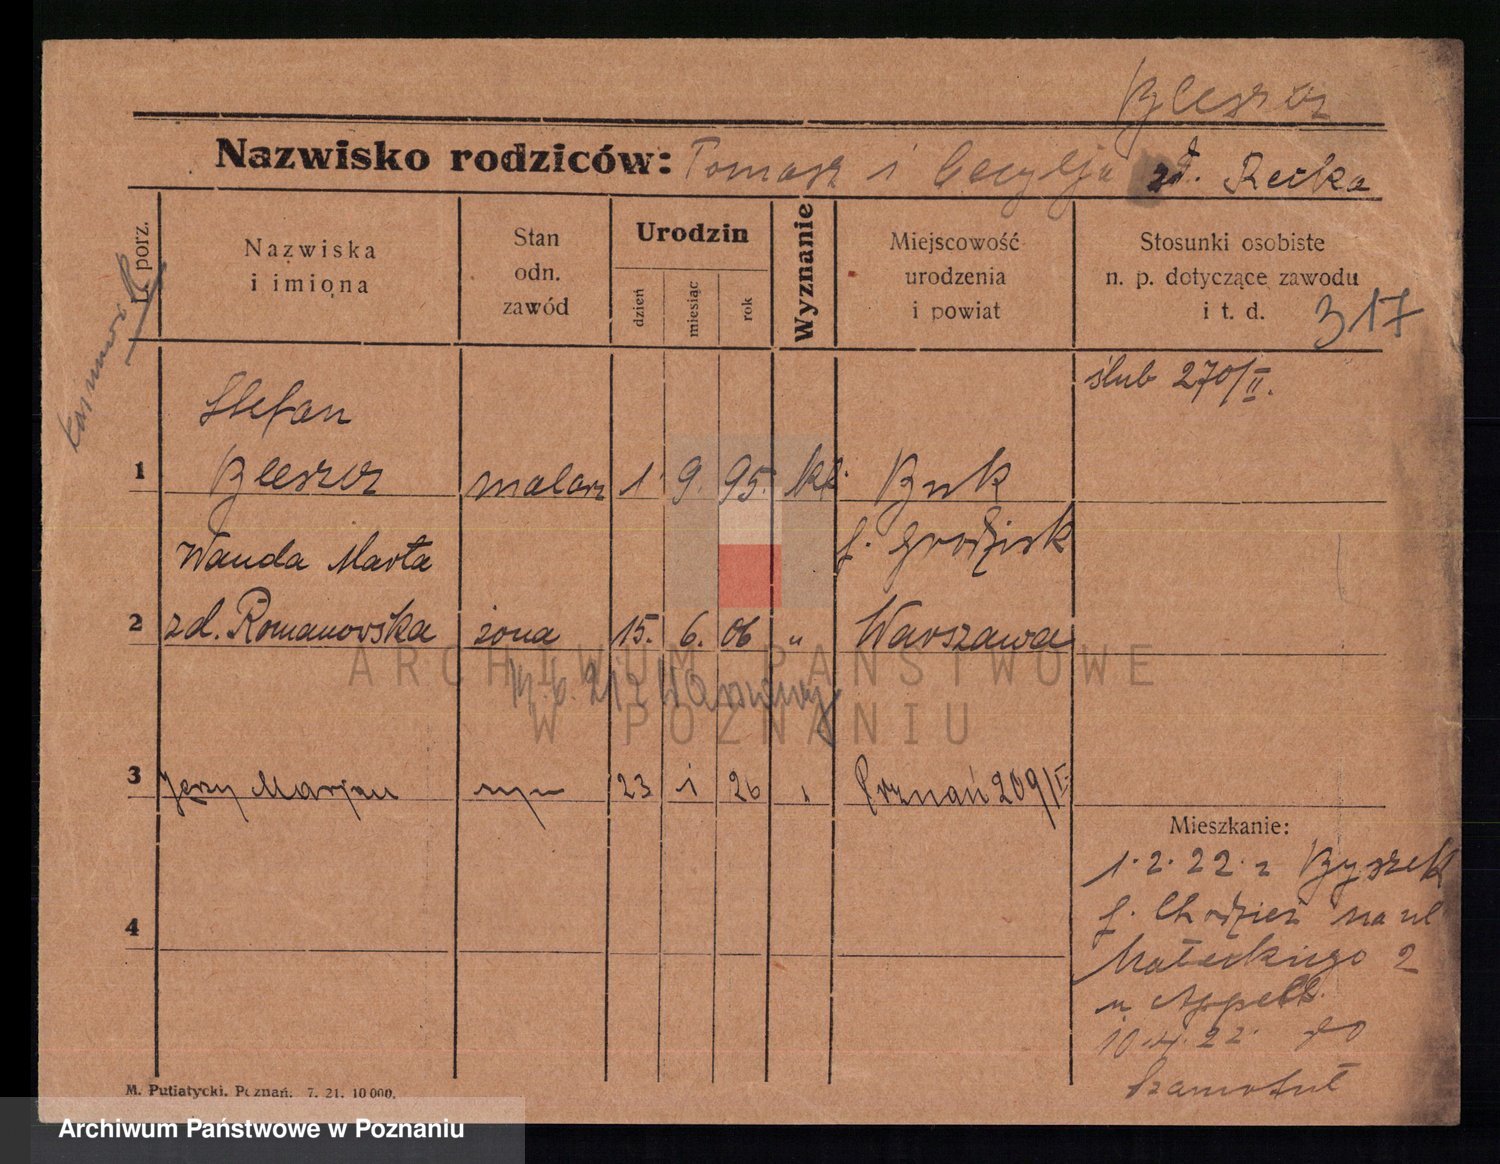 Bleszor
Nazwisko rodziców: Tomasz i Cecylja zd. Recka
L. porz.
Nazwiska
i imiona
Stan
odn.
zawód
Urodzin
dzień
miesiąc
rok
Wyznanie
Miejscowość
urodzenia
i powiat
Stosunki osobiste
n. p. dotyczące zawodu
i t. d.
317
ślub 270/II.
Stefan
1 Bleszor malarz 1 9. 95. kt. Buk
Wanda Marta p. Grodzisk
2 zd. Romanowska żona 15. 6. 06 „ Warszawa
3 Jerzy Marjan syn 23 1 26 Poznań 209/II
4
Mieszkanie:
1.2.22 z Byszek
p. Chodzież na ul
Małeckiego 2
u Appelt.
22 do
Szamotuł
M. Putiatycki, Poznań. 7. 21. 10 000.
ARCHIWUM PAŃSTWOWE
W POZNANIU
Archiwum Państwowe w Poznaniu